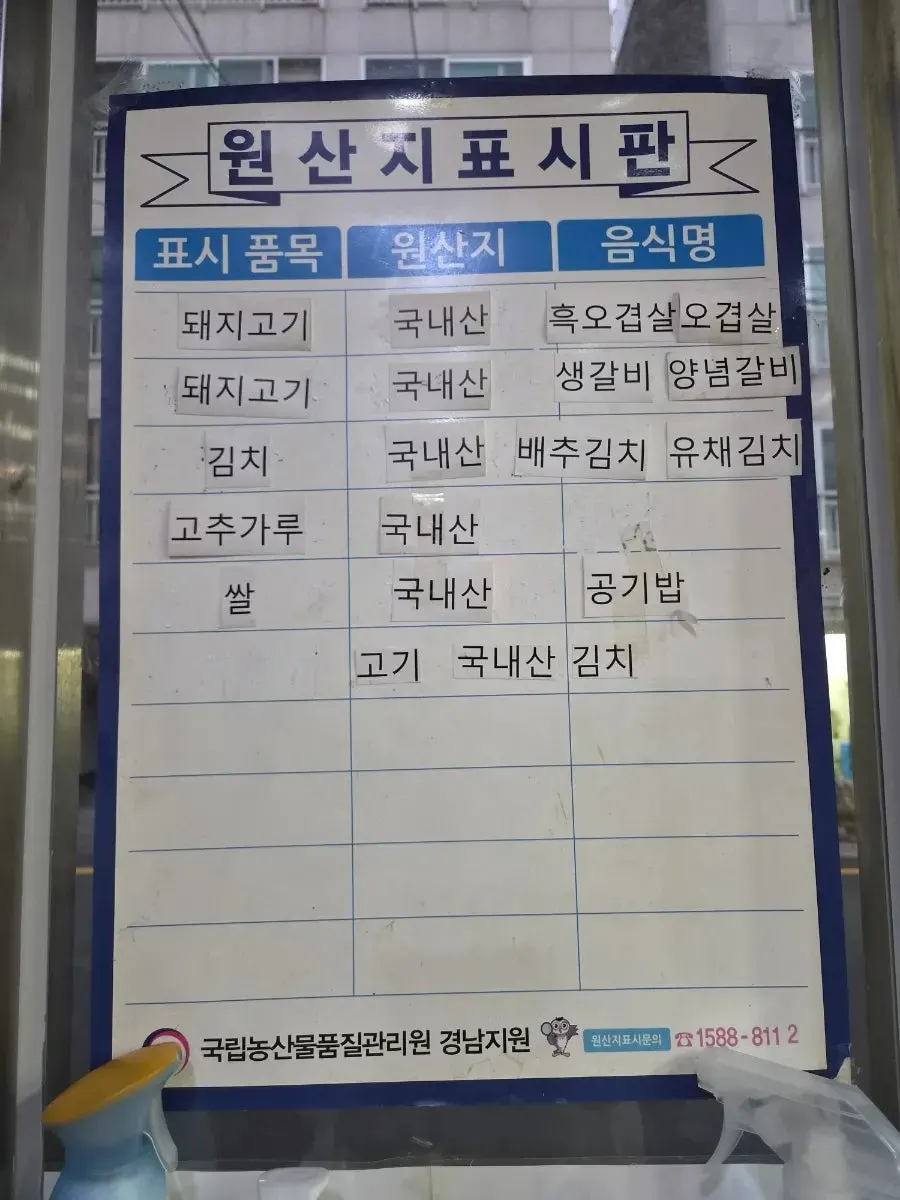 원산지표시판
표시 품목 원산지 음식명
돼지고기 국내산 흑오겹살 오겹살
돼지고기 국내산 생갈비 양념갈비
김치 국내산 배추김치 유채김치
고추가루 국내산
쌀 국내산 공기밥
고기 국내산 김치
국립농산물품질관리원 경남지원 원산지표시문의 ☎1588-8112